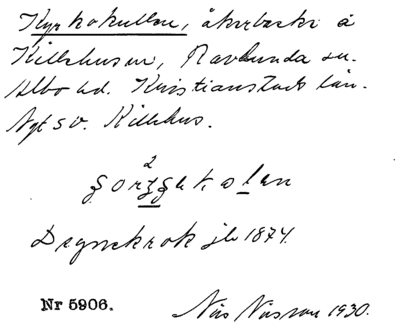 Kyrkokullen, åkerbacke å
Killehusen, Ravlunda sn.
Albo hd. Kristianstads län.
Nytt sv. Killehus.
2
Degnekrok jb 1874.
Nr 5906. Nils Nilsson 1930.